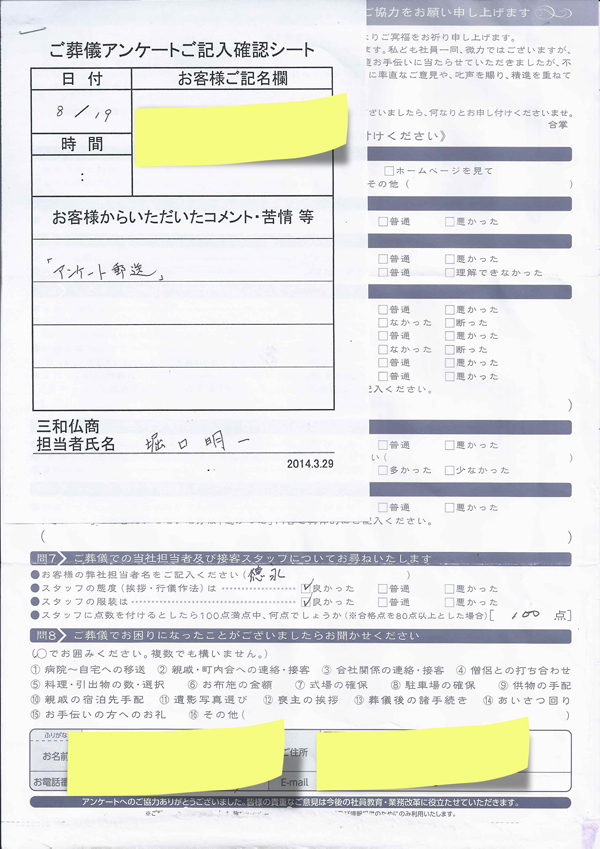 ご協力をお願い申し上げます
ご葬儀アンケートご記入確認シート
日付
お客様ご記名欄
8/19
時間
:
お客様からいただいたコメント・苦情 等
「アンケート郵送」
三和仏商
担当者氏名 堀口明一
2014.3.29
ご冥福をお祈り申し上げます。
ます。私ども社員一同、微力ではございますが、
お手伝いに当たらせていただきましたが、不
に率直なご意見や、叱声を賜り、精進を重ねて
ございましたら、何なりとお申し付けくださいませ。
合掌
付けください》
□ホームページを見て
その他( )
□普通 □悪かった
□普通 □悪かった
□普通 □理解できなかった
□普通 □悪かった
□なかった □断った
□普通 □悪かった
□なかった □断った
□普通 □悪かった
□普通 □悪かった
記入ください。
)
□普通 □悪かった
い( )
□多かった □少なかった
□普通 □悪かった
ご記入ください。
( )
問7 ご葬儀での当社担当者及び接客スタッフについてお尋ねいたします
●お客様の弊社担当者名をご記入ください(徳永 )
●スタッフの態度(挨拶・行儀作法)は ☑良かった □普通 □悪かった
●スタッフの服装は ☑良かった □普通 □悪かった
●スタッフに点数を付けるとしたら100点満点中、何点でしょうか(※合格点を80点以上とした場合)[ 100 点]
問8 ご葬儀でお困りになったことがございましたらお聞かせください
(○でお囲みください。複数でも構いません。)
① 病院〜自宅への移送 ② 親戚・町内会への連絡・接客 ③ 会社関係の連絡・接客 ④ 僧侶との打ち合わせ
⑤ 料理・引出物の数・選択 ⑥ お布施の金額 ⑦ 式場の確保 ⑧ 駐車場の確保 ⑨ 供物の手配
⑩ 親戚の宿泊先手配 ⑪ 遺影写真選び ⑫ 喪主の挨拶 ⑬ 葬儀後の諸手続き ⑭ あいさつ回り
⑮ お手伝いの方へのお礼 ⑯ その他( )
ふりがな
お名前
ご住所
お電話番
E-mail
アンケートへのご協力ありがとうございました。皆様の貴重なご意見は今後の社員教育・業務改革に役立たせていただきます。